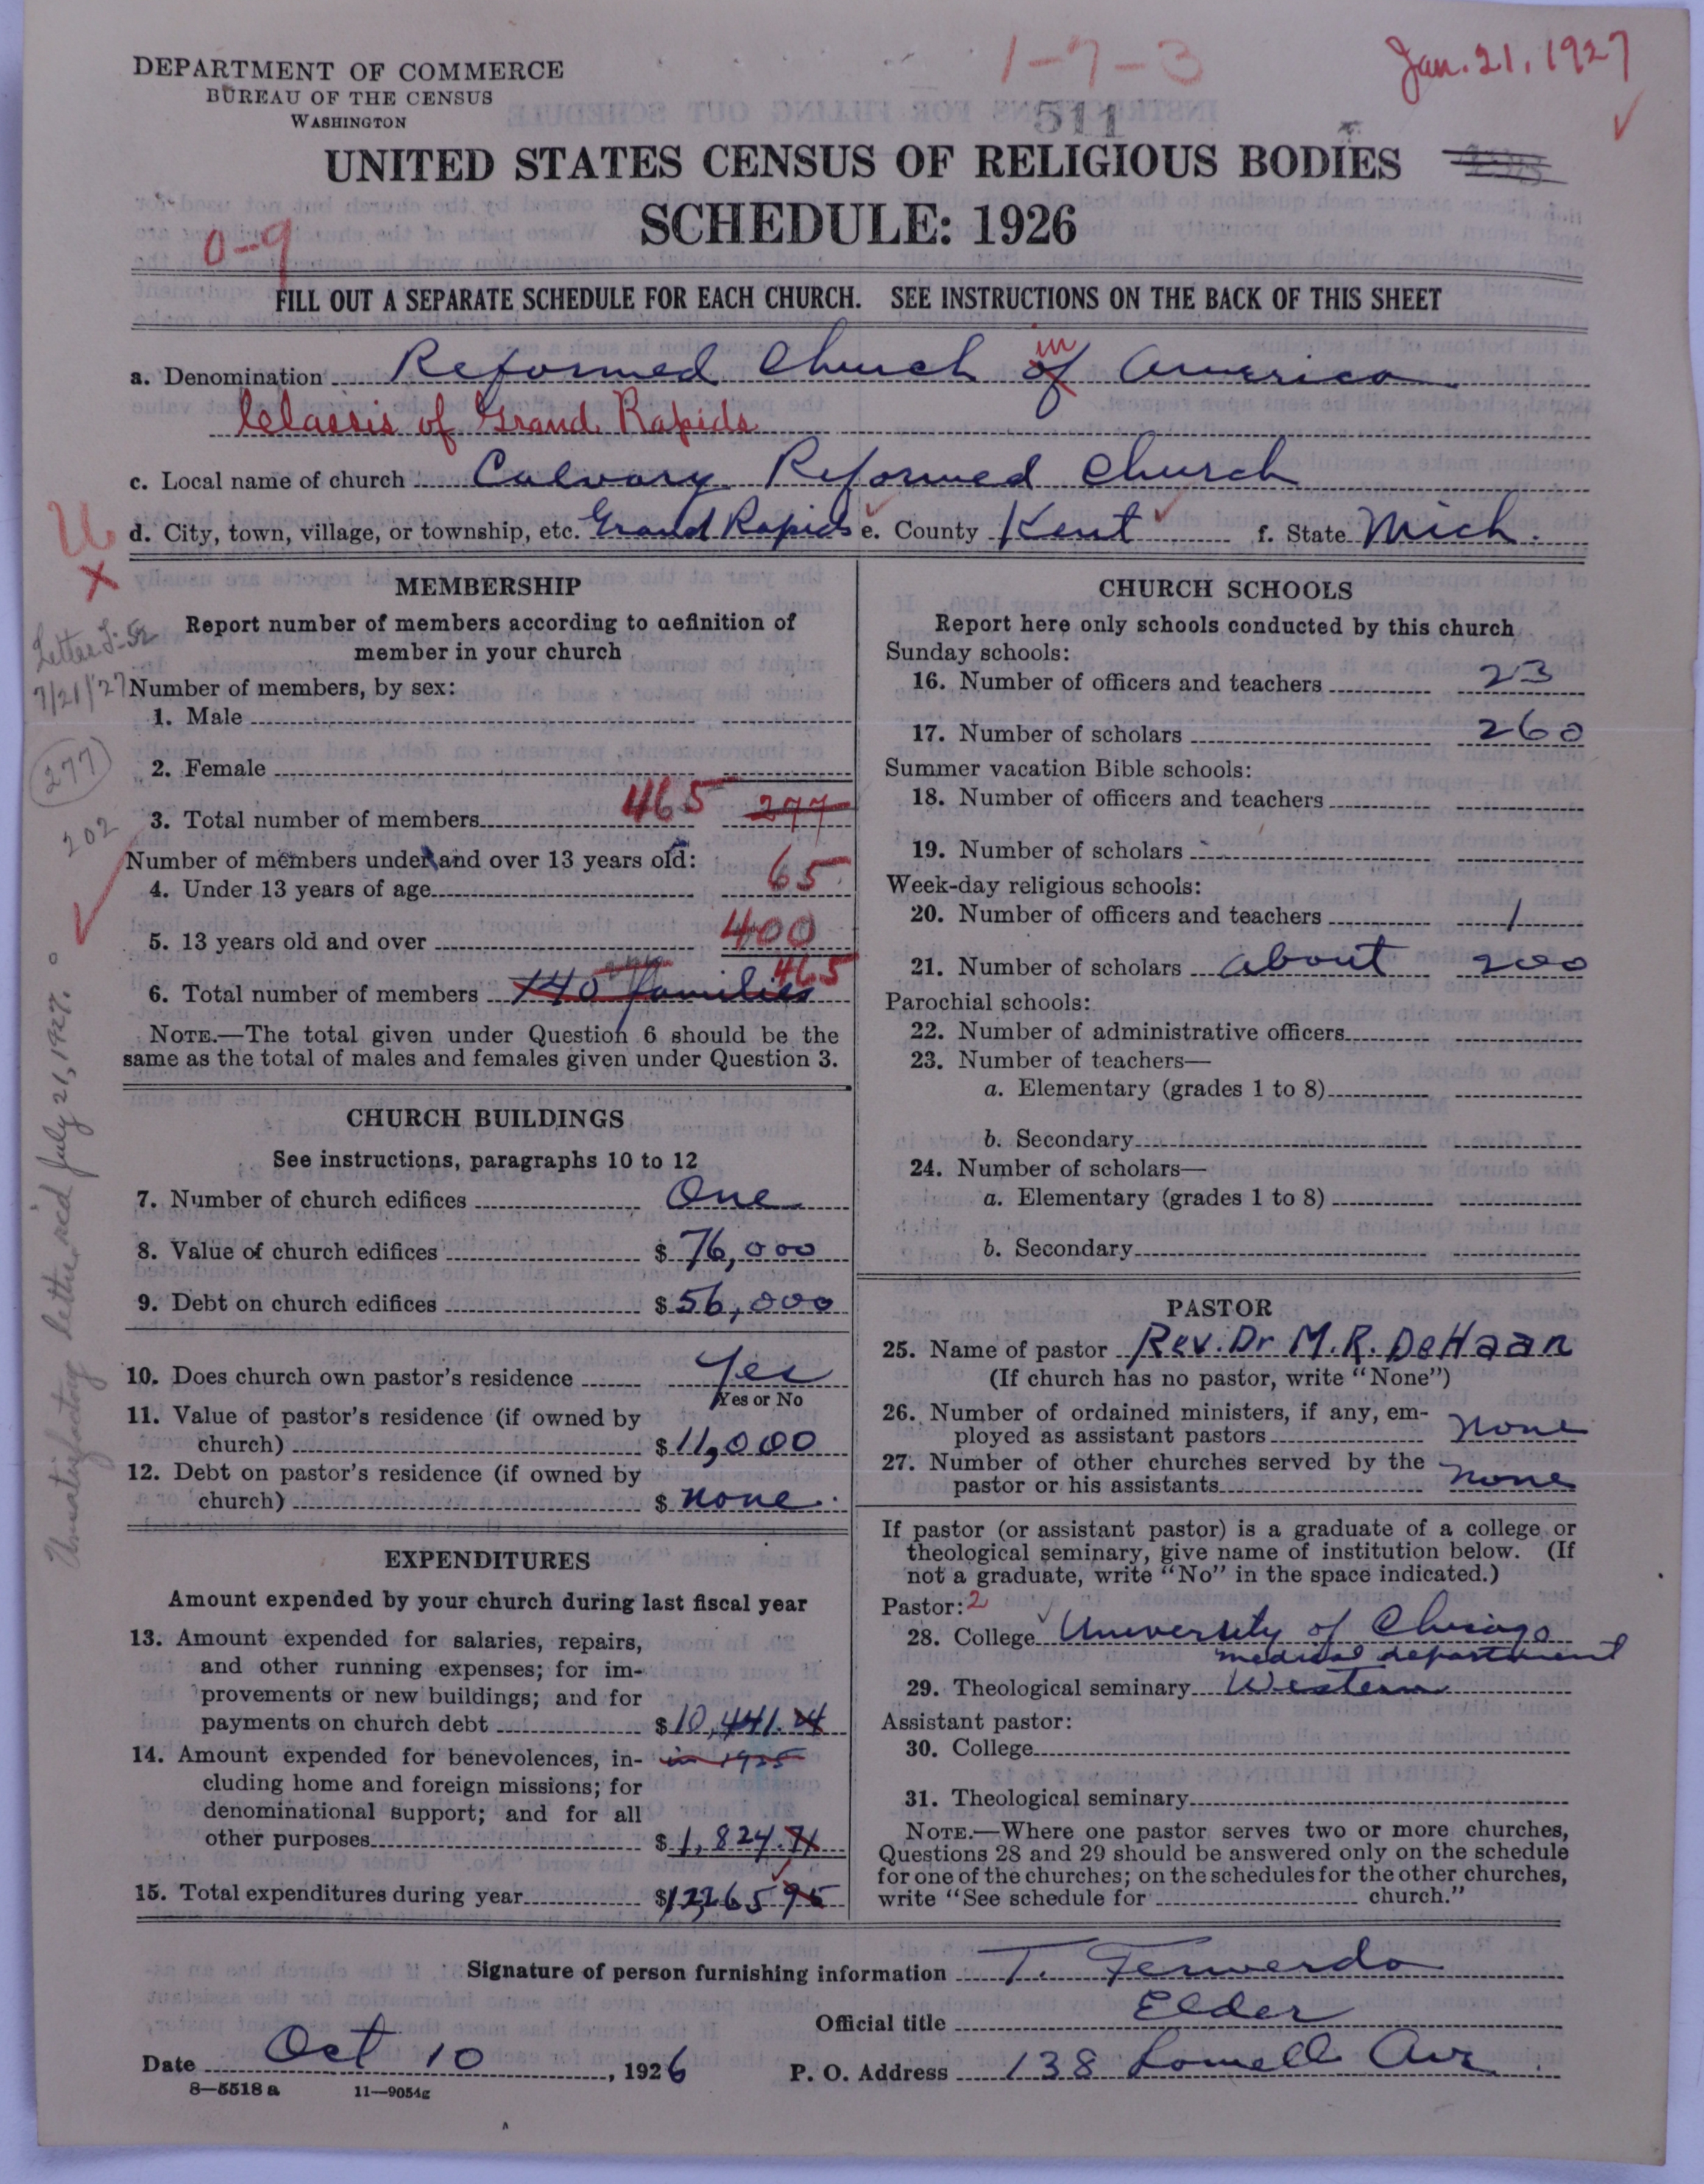 1-7-3
Jan. 21, 1927
DEPARTMENT OF COMMERCE
BUREAU OF THE CENSUS
WASHINGTON
511
UNITED STATES CENSUS OF RELIGIOUS BODIES
SCHEDULE: 1926
0-9
FILL OUT A SEPARATE SCHEDULE FOR EACH CHURCH. SEE INSTRUCTIONS ON THE BACK OF THIS SHEET
a. Denomination Reformed Church of in America
Classis of Grand Rapids
c. Local name of church Calvary Reformed Church
d. City, town, village, or township, etc. Grand Rapids e. County Kent f. State Mich.
MEMBERSHIP
Report number of members according to definition of
member in your church
Letter
7/21/'27
Number of members, by sex:
1. Male
2. Female
277
3. Total number of members 465 277
202
Number of members under and over 13 years old:
4. Under 13 years of age 65
5. 13 years old and over 400
6. Total number of members 140 families 465
NOTE.—The total given under Question 6 should be the
same as the total of males and females given under Question 3.
Unsatisfactory letter rec'd July 21, 1927.
CHURCH BUILDINGS
See instructions, paragraphs 10 to 12
7. Number of church edifices One
8. Value of church edifices $ 76,000
9. Debt on church edifices $ 56,000
10. Does church own pastor's residence Yes
Yes or No
11. Value of pastor's residence (if owned by
church) $ 11,000
12. Debt on pastor's residence (if owned by
church) $ none.
EXPENDITURES
Amount expended by your church during last fiscal year
13. Amount expended for salaries, repairs,
and other running expenses; for im-
provements or new buildings; and for
payments on church debt $ 10,441.24
14. Amount expended for benevolences, in- in 1925
cluding home and foreign missions; for
denominational support; and for all
other purposes $ 1,824.71
15. Total expenditures during year $ 12265 95
CHURCH SCHOOLS
Report here only schools conducted by this church
Sunday schools:
16. Number of officers and teachers 23
17. Number of scholars 260
Summer vacation Bible schools:
18. Number of officers and teachers
19. Number of scholars
Week-day religious schools:
20. Number of officers and teachers 1
21. Number of scholars about 200
Parochial schools:
22. Number of administrative officers
23. Number of teachers—
a. Elementary (grades 1 to 8)
b. Secondary
24. Number of scholars—
a. Elementary (grades 1 to 8)
b. Secondary
PASTOR
25. Name of pastor Rev. Dr M.R. DeHaan
(If church has no pastor, write "None")
26. Number of ordained ministers, if any, em-
ployed as assistant pastors none
27. Number of other churches served by the
pastor or his assistants none
If pastor (or assistant pastor) is a graduate of a college or
theological seminary, give name of institution below. (If
not a graduate, write "No" in the space indicated.)
Pastor: 2
28. College University of Chicago
medical department
29. Theological seminary Western
Assistant pastor:
30. College
31. Theological seminary
NOTE.—Where one pastor serves two or more churches,
Questions 28 and 29 should be answered only on the schedule
for one of the churches; on the schedules for the other churches,
write "See schedule for church."
Signature of person furnishing information T. Ferwerda
Official title Elder
Date Oct 10, 1926 P. O. Address 138 Lowell Ave.
8—5518 a 11—9054g